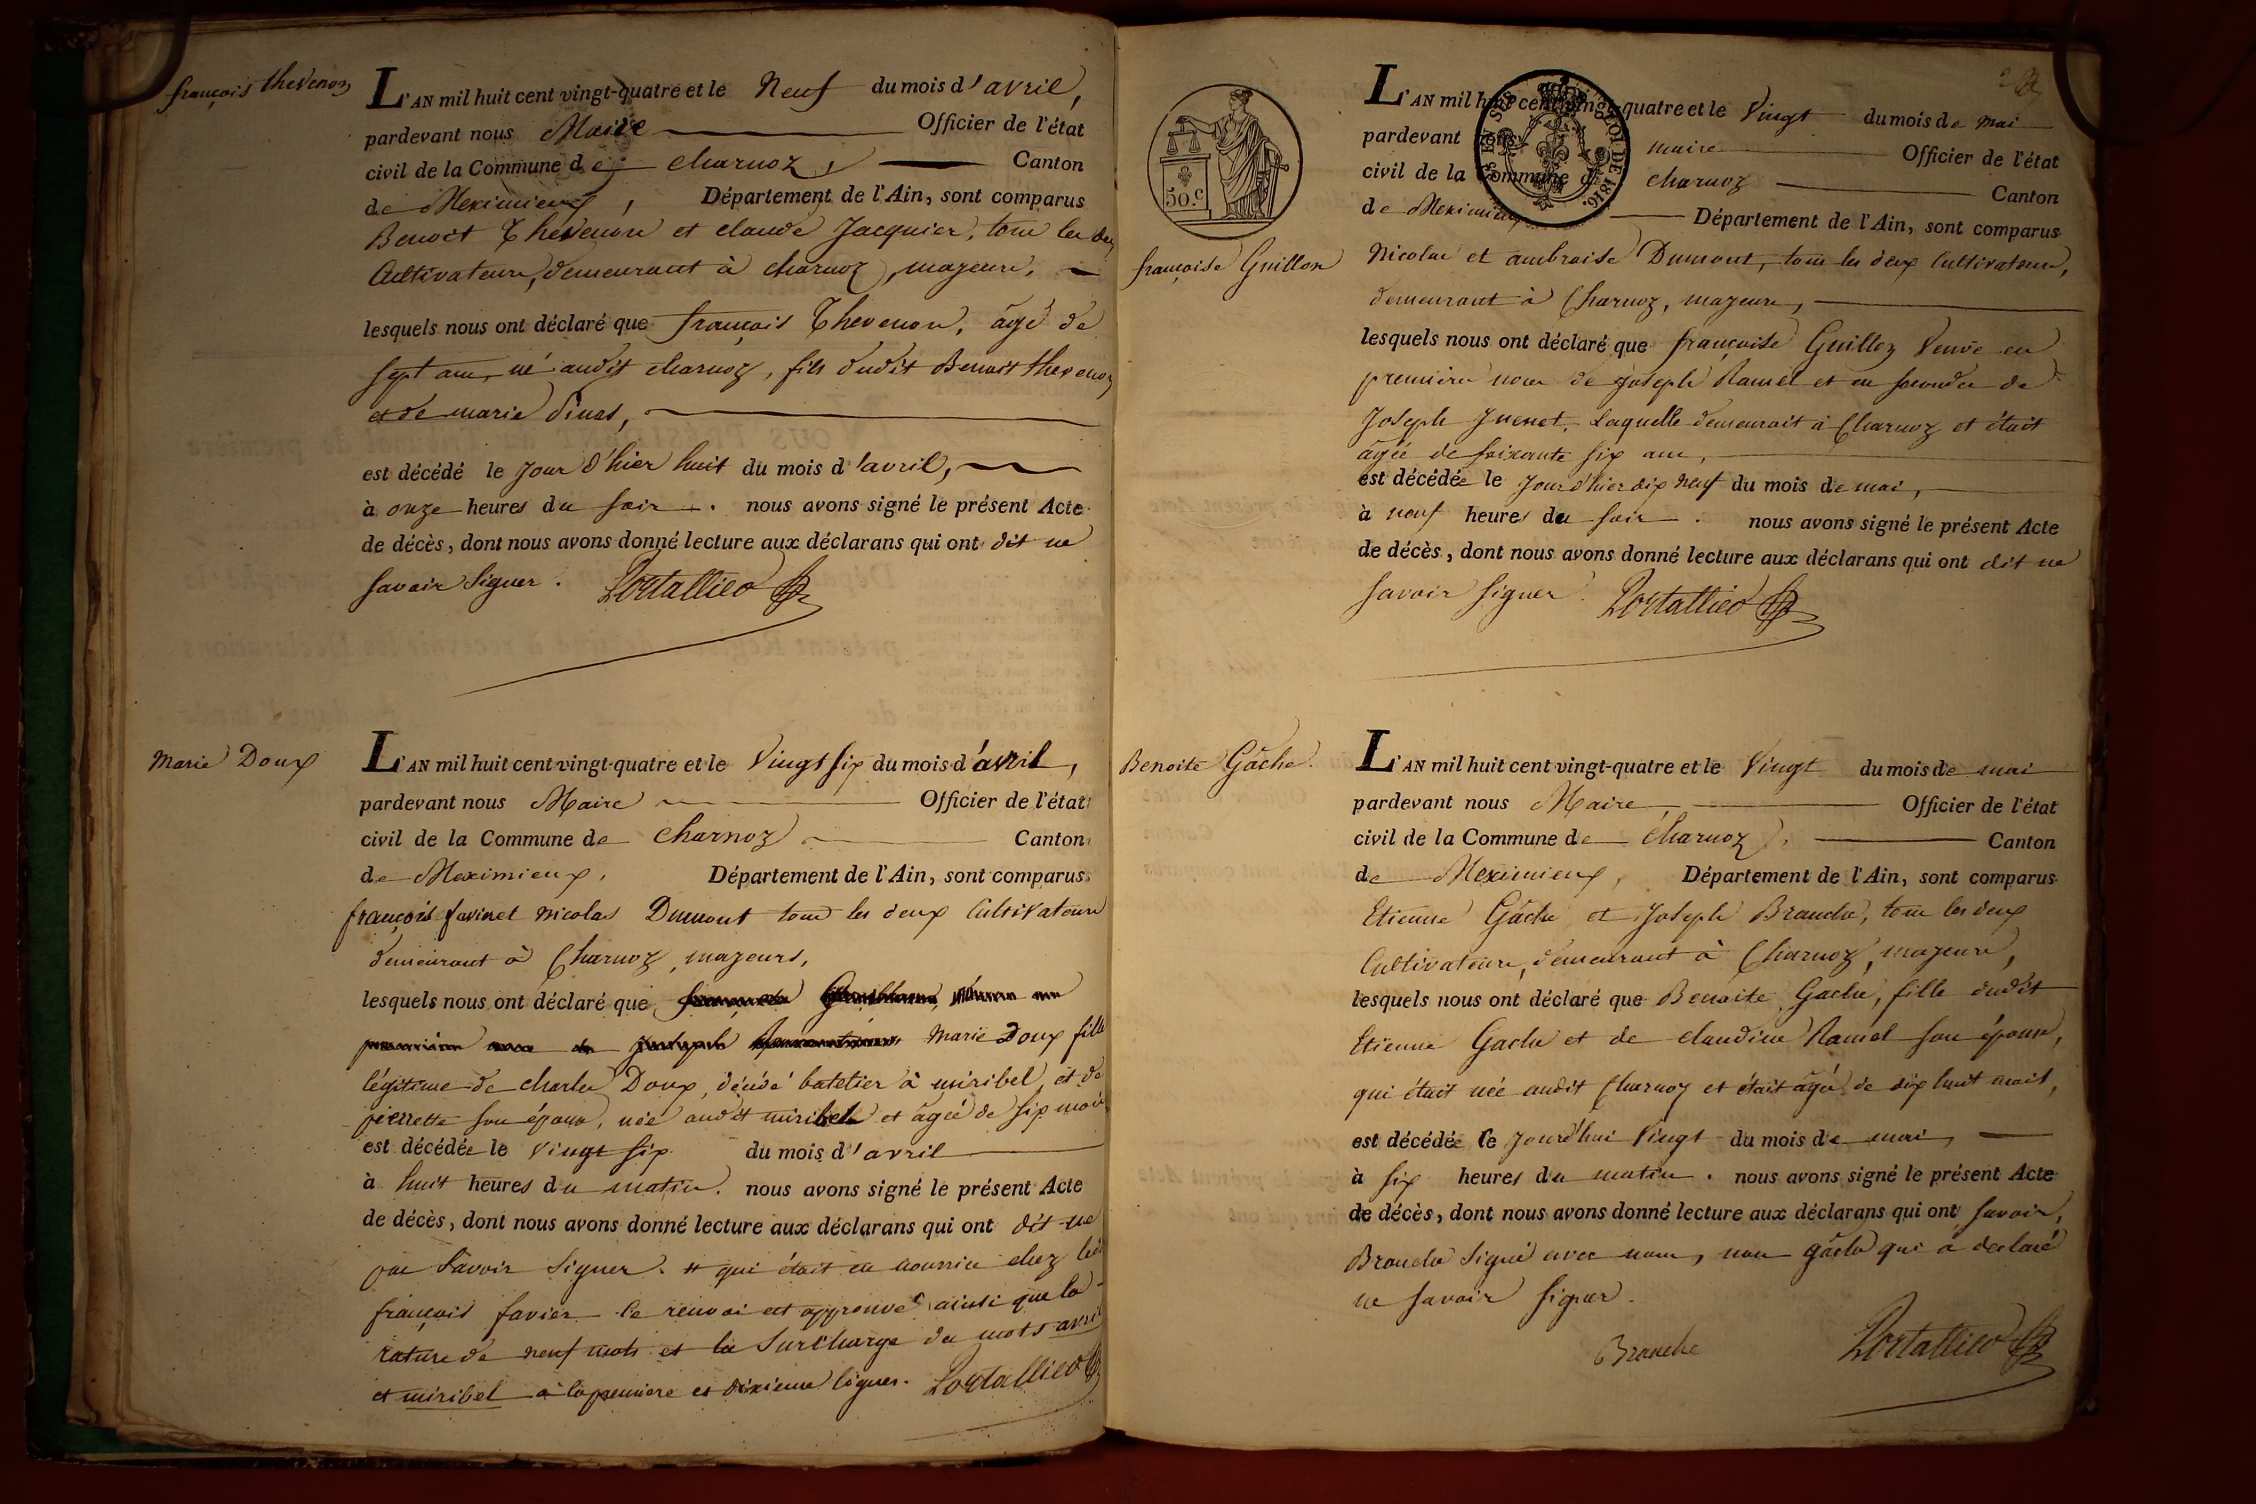 françois thevenon
L'AN mil huit cent vingt-quatre et le Neuf du mois d'avril,
pardevant nous Maire Officier de l'état
civil de la Commune de charnoz, Canton
de Meximieux, Département de l'Ain, sont comparus
Benoit Thevenon et claude Jacquier, tous les deux
Cultivateurs, demeurant à charnoz, majeurs,
lesquels nous ont déclaré que françois Thevenon, âgé de
sept ans, né audit charnoz, fils dudit Benoit thevenon
et de marie
est décédé le jour d'hier huit du mois d'avril,
à onze heures du soir. nous avons signé le présent Acte
de décès, dont nous avons donné lecture aux déclarans qui ont dit ne
savoir signer. Portallier
Marie Doux
L'AN mil huit cent vingt-quatre et le Vingt six du mois d'avril,
pardevant nous Maire Officier de l'état
civil de la Commune de charnoz Canton
de Meximieux, Département de l'Ain, sont comparus
françois favier et nicolas Dumont tous les deux Cultivateurs
demeurant à Charnoz, majeurs,
lesquels nous ont déclaré que
joseph Marie Doux fille
légitime de charles Doux, décédé batelier à miribel, et de
pierrette son épouse, née audit miribel et âgée de six mois
est décédée le vingt six du mois d'avril
à huit heures du matin. nous avons signé le présent Acte
de décès, dont nous avons donné lecture aux déclarans qui ont dit ne
pas savoir signer. # qui était en nourrice chez ledit
françois favier le renvoi est approuvé ainsi que la
rature de neuf mots et la surcharge du mots avril
et miribel à la premiere et dixieme lignes. Portallier
50.c
françoise Guillon
L'AN mil huit cent vingt-quatre et le Vingt du mois de mai
pardevant nous maire Officier de l'état
civil de la Commune de charnoz Canton
de Meximieux Département de l'Ain, sont comparus
Nicolas et ambroise Dumont, tous les deux Cultivateurs,
demeurant à Charnoz, majeurs,
lesquels nous ont déclaré que françoise Guillon Veuve en
premières noces de Joseph Ramel et en secondes de
Joseph Juenet, Laquelle demeurait à Charnoz et était
âgée de soixante six ans,
est décédée le jour d'hier dix neuf du mois de mai,
à neuf heures du soir. nous avons signé le présent Acte
de décès, dont nous avons donné lecture aux déclarans qui ont dit ne
savoir signer. Portallier
Benoite Gâche.
L'AN mil huit cent vingt-quatre et le Vingt du mois de mai
pardevant nous Maire, Officier de l'état
civil de la Commune de charnoz, Canton
de Meximieux, Département de l'Ain, sont comparus
Etienne Gâche et Joseph Branche, tous les deux
Cultivateurs, demeurant à Charnoz, majeurs,
lesquels nous ont déclaré que Benoite Gache, fille dudit
Etienne Gache et de claudine Ramel son épouse,
qui était née audit Charnoz et était âgée de dix huit mois,
est décédée le jourd'hui vingt du mois de mai,
à six heures du matin. nous avons signé le présent Acte
de décès, dont nous avons donné lecture aux déclarans qui ont savoir,
Branche signé avec nous, non gâche qui a déclaré
ne savoir signer.
Branche Portallier